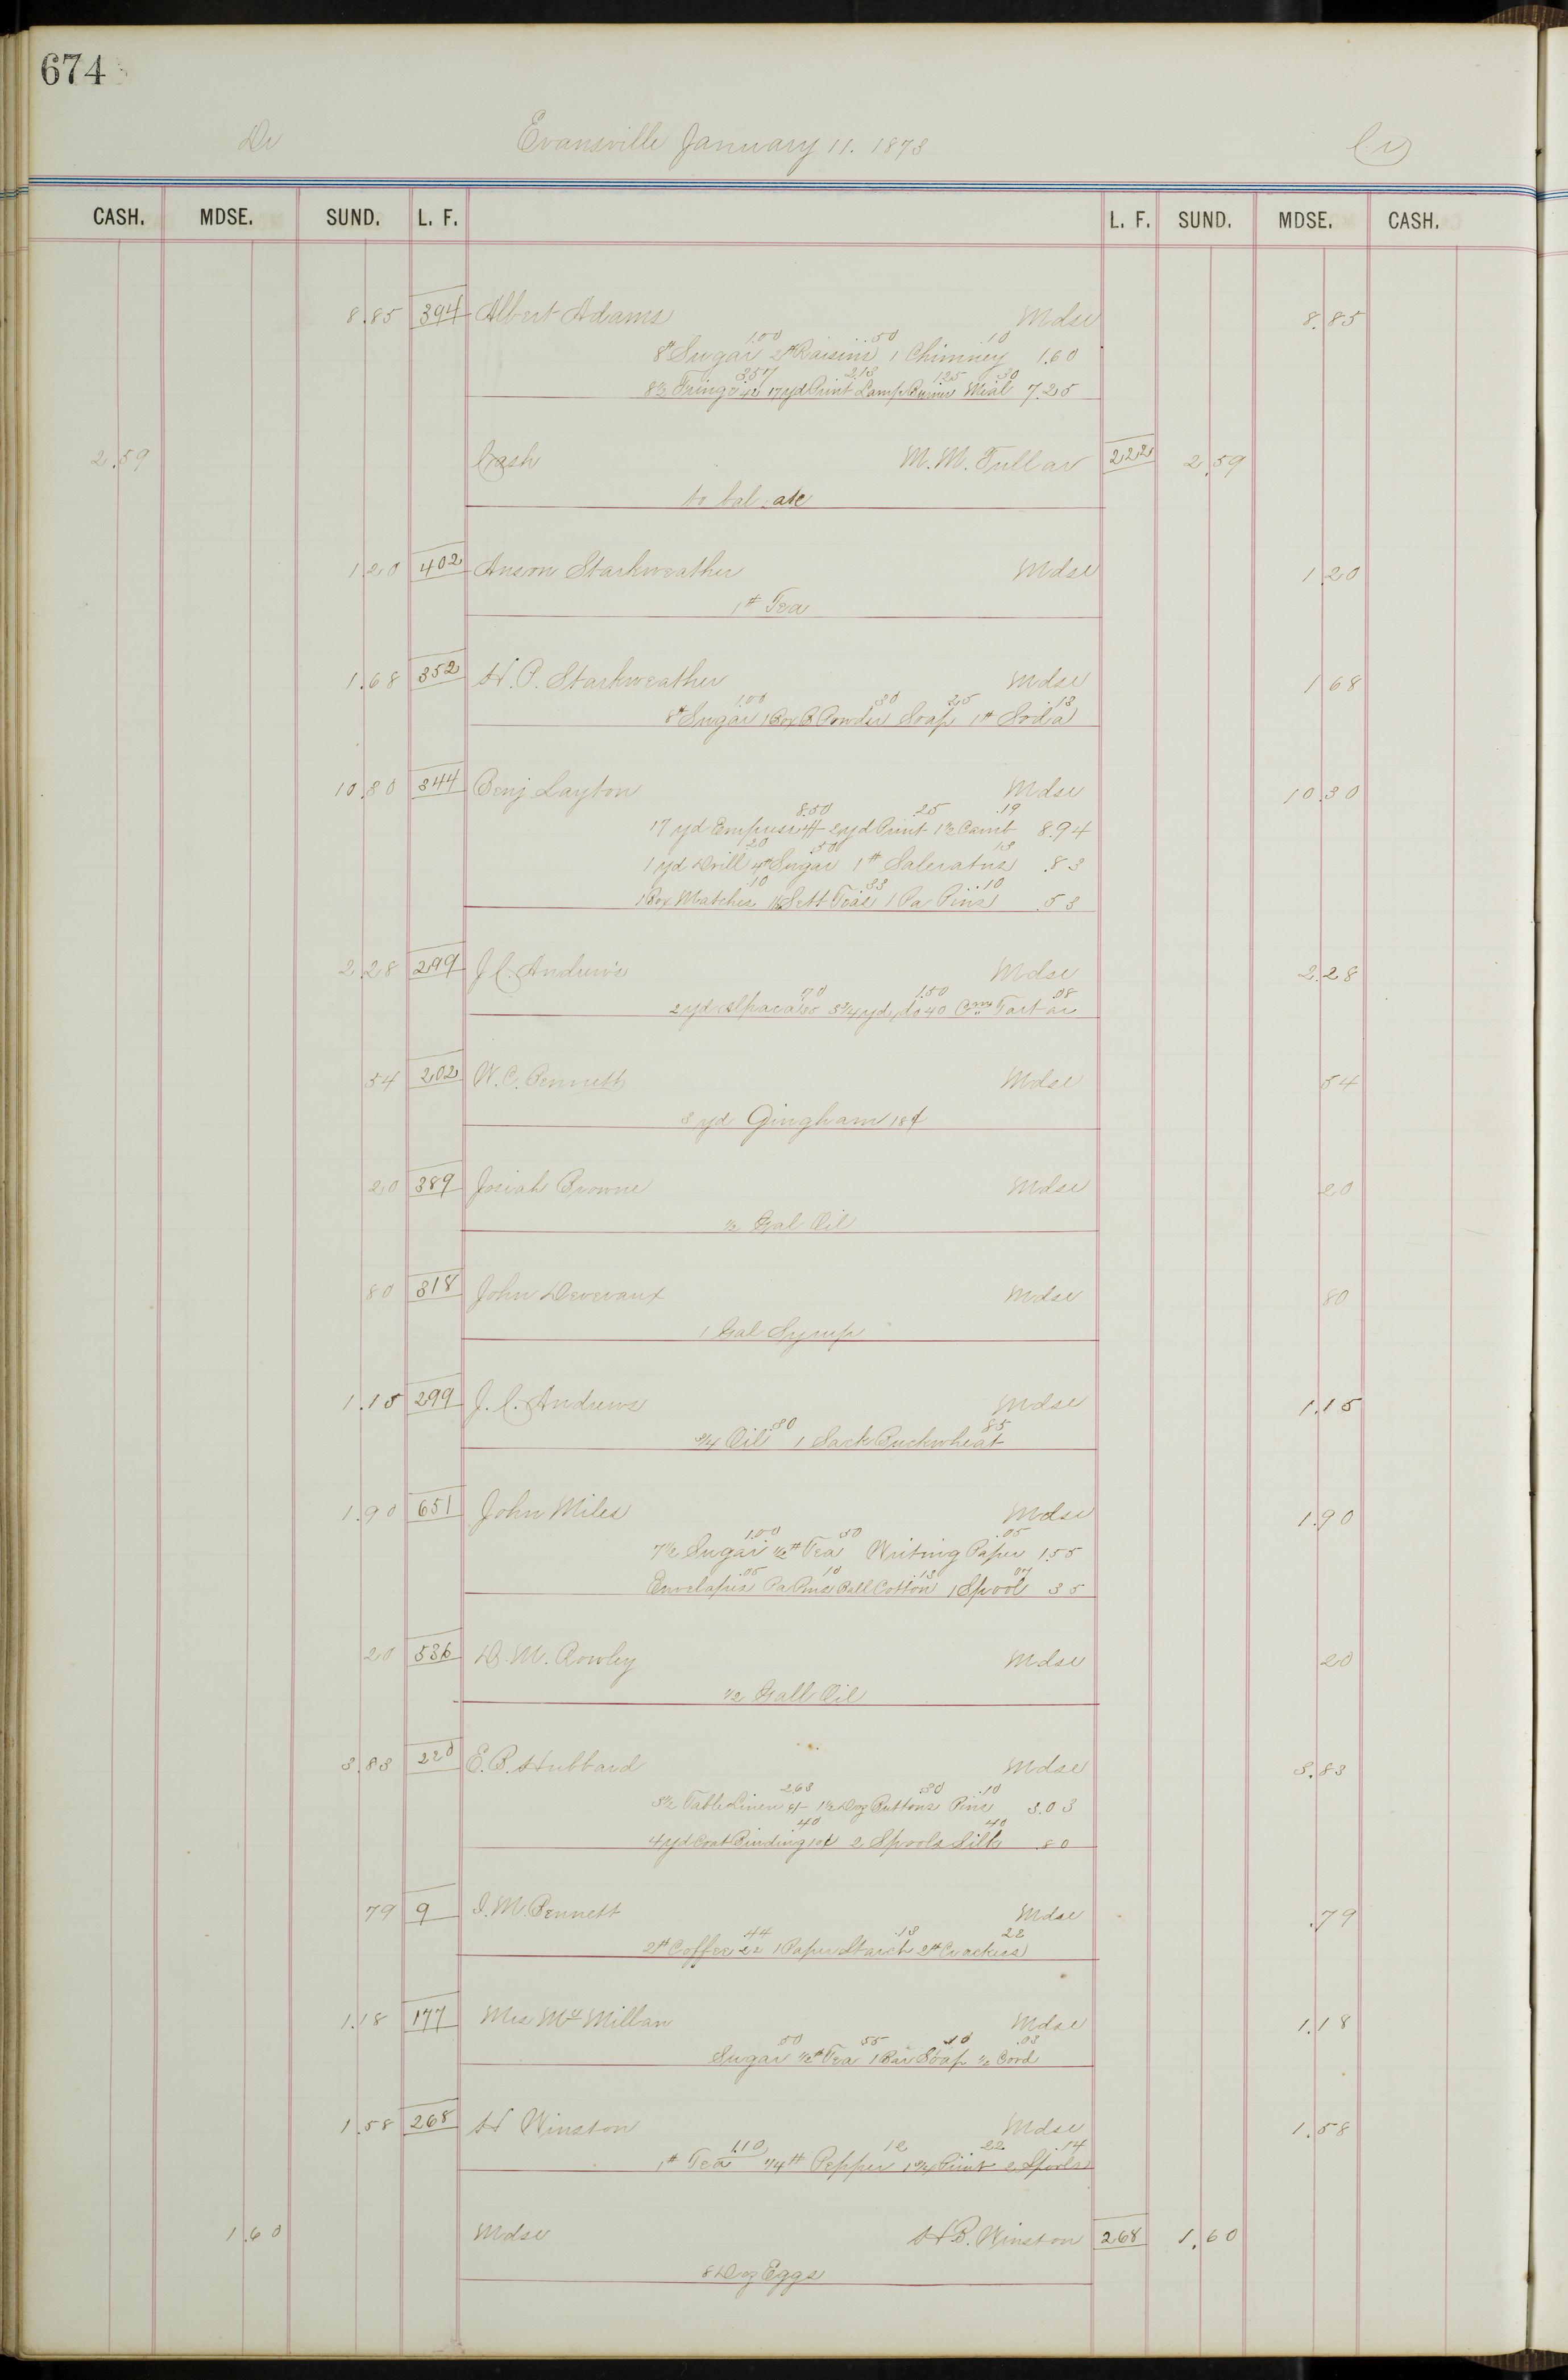 674
Dr Evansville January 11. 1873 Cr
CASH. MDSE. SUND. L. F. L. F. SUND. MDSE. CASH.
8.85 394 Albert Adams Mdse 8.85
1.00 .50 10
8# Sugar 2# Raisins 1 Chimney 1.60
357 2.13 1.25 30
8½ Fringe 42 17 yd Print Lamp Burner Meal 7.25
2.59 Cash M. M. Tullar 222 2.59
to bal. a/c
1.20 402 Anson Starkweather Mdse 1.20
1# Tea
1.68 352 H. P. Starkweather Mdse 1 68
1.00 30 25 .13
8# Sugar 1 Box B Powder Soap 1# Soda
10.30 344 Benj Layton Mdse 10.30
8.50 .25 .19
17 yd Empress 4/- 2 yd Print 1½ Camb 8.94
20 .50 13
1 yd Drill 4# Sugar 1# Saleratus .83
10 33 .10
1 Box Matches 1 Sett Teas 1 Pa Pins .53
2.28 299 J. C. Andrews Mdse 2.28
70 1.50 .08
2 yd Alpaca 35 3¾ yd do 40 Crm Tartar
54 202 W. C. Bennett Mdse 54
3 yd Gingham 18¢
20 389 Josiah Browne Mdse 20
½ Gal Oil
80 318 John Devereaux Mdse 80
1 Gal Syrup
1.15 299 J. C. Andrews Mdse 1.15
.30 85
¾ Oil 1 Sack Buckwheat
1.90 651 John Miles Mdse 1.90
1.00 50 .05
7½ Sugar ½# Tea Writing Paper 1.55
.05 10 .13 07
Envelopes Pa Pins Ball Cotton 1 Spool 35
20 536 D. M. Rowley Mdse 20
½ Gall Oil
3.83 220 E. B. Hubbard Mdse 3.83
263 .30 .10
3½ Table Linen 6/- 1½ Doz Buttons Pins 3.03
40 40
4 yd Coat Binding 10¢ 2 Spools Silk .80
79 9 I. M. Bennett Mdse .79
.44 .13 22
2# Coffee 22 1 Paper Starch 2# Crackers
1.18 177 Mrs McMillan Mdse 1.18
50 55 10 .03
Sugar ½# Tea 1 Bar Soap ½ Cord
1.58 268 H Winston Mdse 1.58
1.10 12 22 .14
1# Tea ¼# Pepper 1¾ Print 2 Spools
1.60 Mdse H. B. Winston 268 1.60
8 Doz Eggs